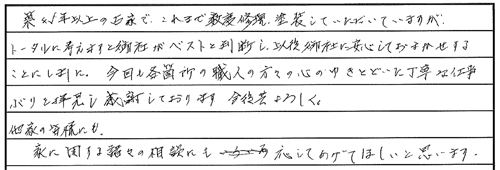 築25年以上のお家で、これまで数度修理、塗装していただいていますが、
トータルに考えますと御社がベストと判断し、以後御社に安心しておまかせする
ことにしました。今回も各箇所の職人の方々の心のゆきとどいた丁寧な仕事
ぶりを拝見し感謝しております 今後共よろしく。
他家の皆様にも、
家に関する諸々の相談にも 応じてあげてほしいと思います。